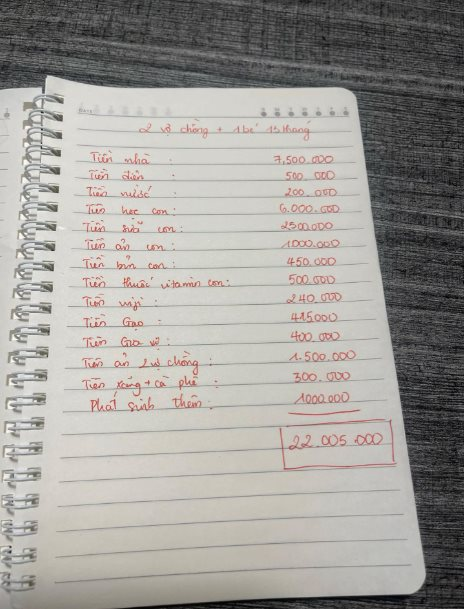 DATE
2 vợ chồng + 1 bé 15 tháng
Tiền nhà : 7,500.000
Tiền điện : 500.000
Tiền nước : 200.000
Tiền học con : 6.000.000
Tiền sữa con : 2500000
Tiền ăn con : 1000.000
Tiền bỉm con : 450.000
Tiền thuốc vitamin con: 500.000
Tiền wifi : 240.000
Tiền Gạo : 415.000
Tiền Gia vị : 400.000
Tiền ăn 2 vợ chồng : 1.500.000
Tiền xăng + cà phê : 300.000
Phát sinh thêm : 1000.000
22.005.000